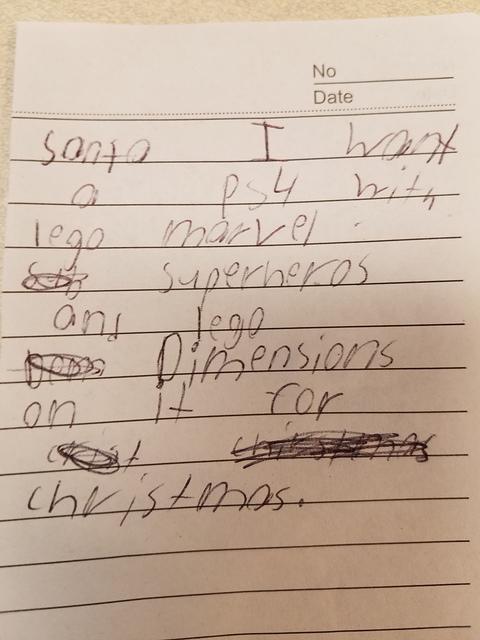 No
Date
santa I want
a ps4 with
lego marvel
superheros
and lego
Dimensions
on it for
christmas
christmas.